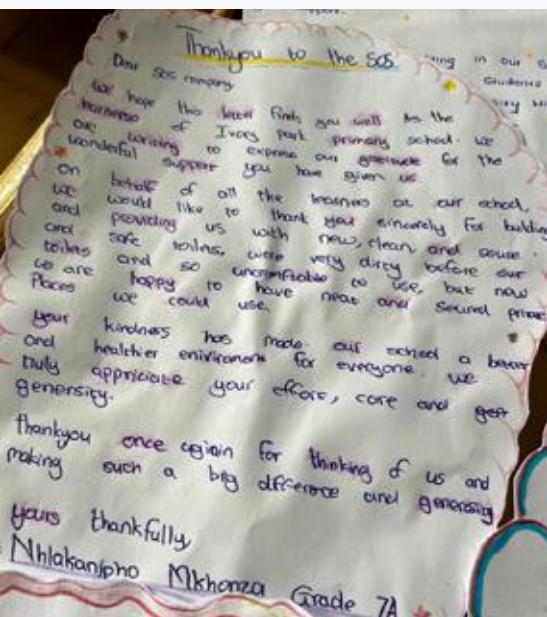 Thankyou to the SOS
Dear SOS company
We hope this letter finds you well As the
learners of Ivory park primary school. we
are writing to express our gratitude for the
wonderful support you have given us
On behalf of all the learners at our school,
we would like to thank you sincerely for building
and providing us with new, clean and secure
and safe toilets, were very dirty before our
toilets and so uncomfortable to use, but now
we are happy to have neat and secured private
Places we could use,
your kindness has made our school a better
and healthier enivironent for everyone. we
truly appriciate your effors, care and
generosity.
thankyou once again for thinking of us and
making such a big difference and generosity
yours thankfully
Nhlakanipho Mkhonza Grade 7A
ing in our
Students